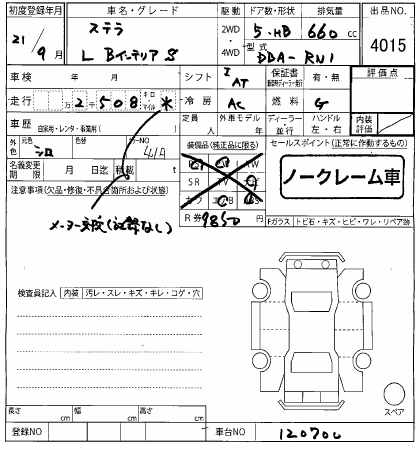 初度登録年月 車名・グレード 駆動 ドア数・形状 排気量 出品NO
21/9月 ステラ 2WD・4WD 5・HB 660 cc 4015
L Bインテリア S 型式 DBA-RN1
車検 年 月 シフト I AT 保証書 有・無 評価点
走行 2千508 キロ マイル ✻ 冷房 AC 燃料 G
車歴 自家用・レンタ・事業用( ) 定員 人 外車モデル 年 ディーラー・並行 ハンドル 左・右 内装評価
外色 元色 シロ 色替 カラーNO 41A 装備品(純正品に限る) セールスポイント(正常に作動するもの)
名義変更期限 月 日迄 積載 t SR ノークレーム車
注意事項(欠品・修復・不具合箇所および状態)
メーター交換(記録なし) R券 9850円
Fガラス トビ石・キズ・ヒビ・ワレ・リペア跡
検査員記入 内装 汚レ・スレ・キズ・キレ・コゲ・穴
スペア
長さ cm 幅 cm 高さ cm
登録NO 車台NO 120700